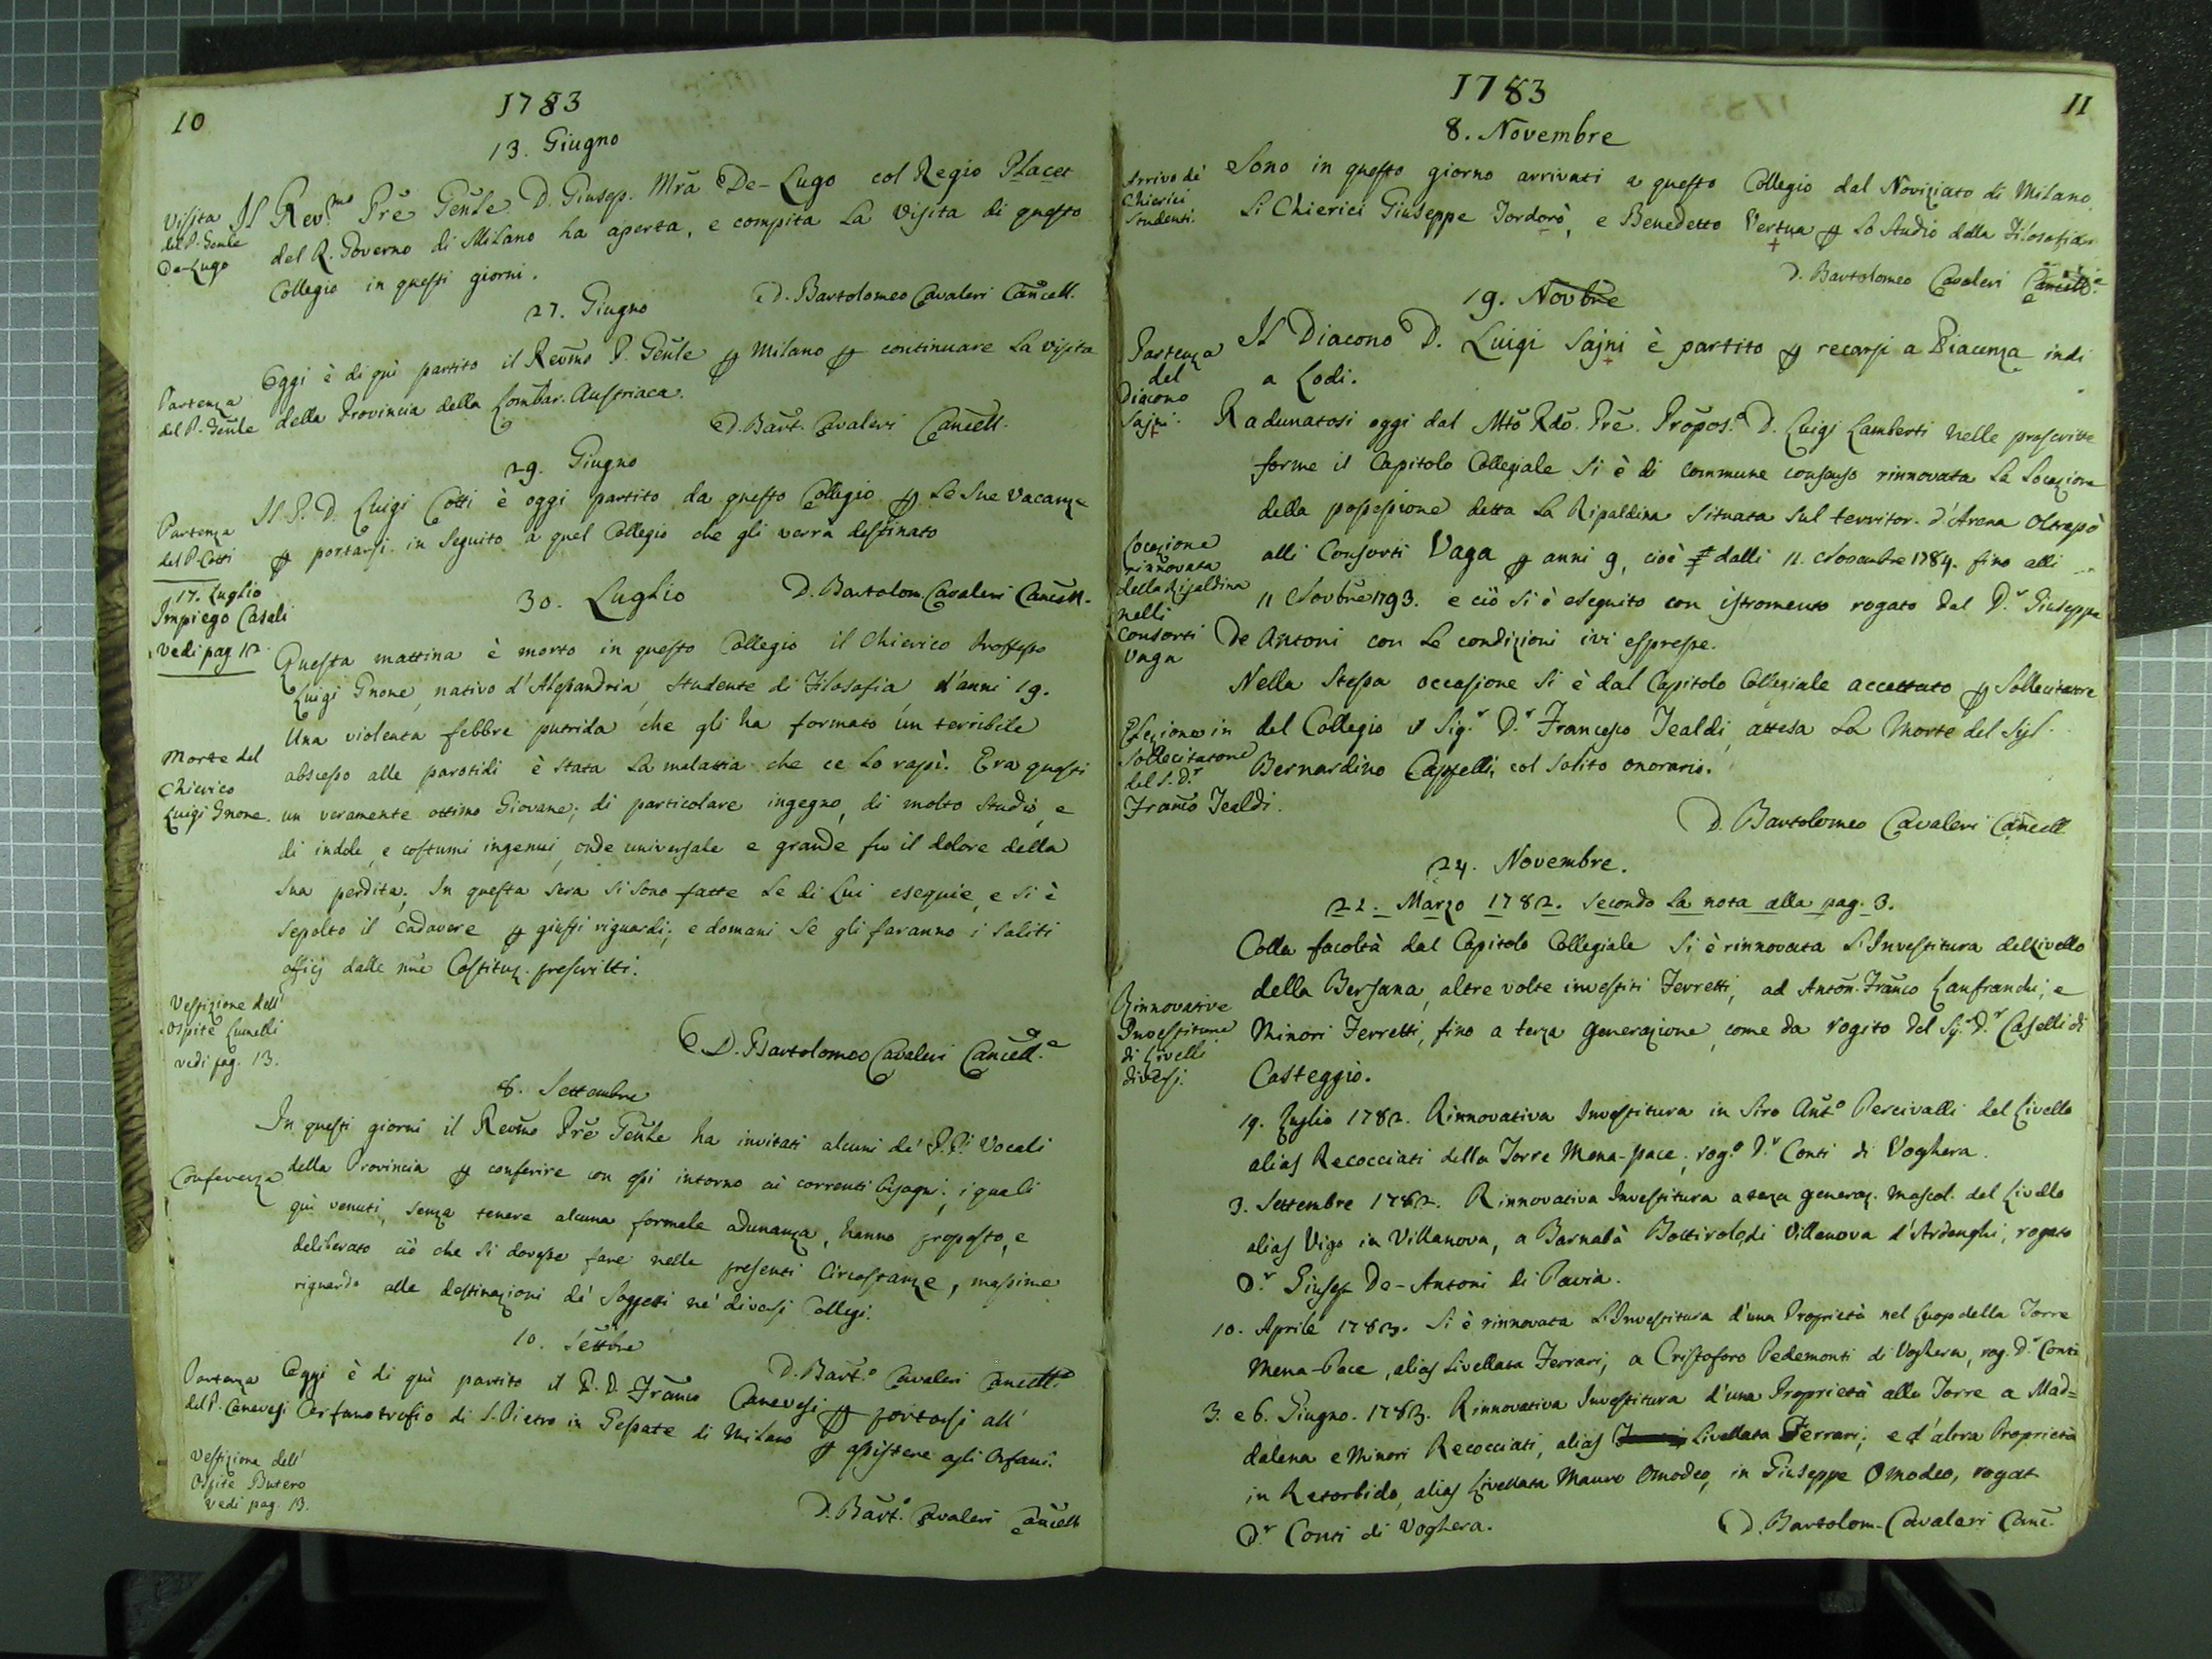 10
1783
13. Giugno
Visita
del P. Genle
De-Lugo
Il Rev.mo Pre Genle. D. Giusep. Mra De-Lugo col Regio Placet
del R. Governo di Milano ha aperta, e compita la visita di questo
Collegio in questi giorni.
D. Bartolomeo Cavaleri Cancell.
27. Giugno
Partenza
del P. Genle
Oggi è di quì partito il Revmo P. Genle ꝑ Milano ꝑ continuare la visita
della Provincia della Lombar. Austriaca.
D. Bart. Cavaleri Cancell.
29. Giugno
Partenza
del P. Cotti
Il P. D. Luigi Cotti è oggi partito da questo Collegio ꝑ le sue vacanze
ꝑ portarsi in seguito a quel Collegio che gli verrà destinato
D. Bartolom. Cavaleri Cancell.
17. Luglio
Impiego Casali
vedi pag. 12.
30. Luglio
Morte del
Chierico
Luigi Gnone.
Questa mattina è morto in questo Collegio il Chierico Professo
Luigi Gnone, nativo d'Alessandria, studente di Filosofia d'anni 19.
Una violenta febbre putrida che gli ha formato un terribile
abscesso alle parotidi è stata la malattia che ce lo rapì. Era questi
un veramente ottimo Giovane; di particolare ingegno, di molto studio, e
di indole, e costumi ingenui, onde universale e grande fu il dolore della
sua perdita. In questa sera si sono fatte le di Lui esequie, e si è
sepolto il Cadavere ꝑ giusti riguardi; e domani se gli faranno i soliti
officj dalle nre Costituz. prescritti.
D. Bartolomeo Cavaleri Cancell.e
Vestizione dell'
Ospite Lumelli
vedi pag. 13.
8. Settembre
Conferenza
In questi giorni il Revmo Pre Genle ha invitati alcuni de' P.Pi Vocali
della Provincia ꝑ conferire con essi intorno ai correnti bisogni; i quali
quì venuti, senza tenere alcuna formale adunanza, hanno proposto, e
deliberato ciò che si dovesse fare nelle presenti Circostanze, massime
riguardo alle destinazioni de' Soggetti ne' diversi Collegi.
D. Bart.o Cavaleri Cancell.e
10. Settbre
Partenza
del P. Canevesi
Oggi è di quì partito il P. D. Franco Canevesi ꝑ portarsi all'
Orfanotrofio di S. Pietro in Gessate di Milano ꝑ assistere agli Orfani.
D. Bart.o Cavaleri Cancell
Vestizione dell'
Ospite Butero
vedi pag. 13.
11
1783
8. Novembre
Arrivo de'
Chierici
Studenti.
Sono in questo giorno arrivati a questo Collegio dal Noviziato di Milano
li Chierici Giuseppe Tordorò, e Benedetto Vertua ꝑ lo studio della Filosofia.
D. Bartolomeo Cavaleri Cancell.e
19. Novbre
Partenza
del
Diacono
Sajni.
Il Diacono D. Luigi Sajni è partito ꝑ recarsi a Piacenza indi
a Lodi.
Locazione
rinnovata
della Ripaldina
nelli
Consorti
Vaga
Radunatosi oggi dal Mto Rdo. Pre. Propos.o D. Luigi Lamberti nelle prescritte
forme il Capitolo Collegiale si è di commune consenso rinnovata la Locazione
della possessione detta la Ripaldina situata sul territor. d'Arena Oltrapò
alli Consorti Vaga ꝑ anni 9, cioè dalli 11. Novembre 1784. fino alli
11 Novbre 1793. e ciò si è eseguito con istromento rogato dal D.r Giuseppe
De Antoni con le condizioni ivi espresse.
Elezione in
Sollecitatore
del S. D.r
Franco Tealdi.
Nella stessa occasione si è dal Capitolo Collegiale accettato ꝑ Sollecitatore
del Collegio il Sig.r D.r Francesco Tealdi, attesa la morte del Sig.
Bernardino Cappelli, col solito onorario.
D. Bartolomeo Cavaleri Cancell
24. Novembre.
22. Marzo 1782. secondo la nota alla pag. 3.
Rinnovative
Investiture
di Livelli
diversi.
Colla facoltà dal Capitolo Collegiale si è rinnovata l'Investitura del Livello
della Bersana, altre volte investiti Ferretti, ad Anton. Franco Lanfranchi, e
Minori Ferretti, fino a terza generazione, come da rogito del Sig. D.r Caselli di
Casteggio.
19. Luglio 1782. Rinnovativa Investitura in Siro Ant.o Percivalli del Livello
alias Recocciati della Torre Mena-pace, rog.o D.r Conti di Voghera.
3. Settembre 1782. Rinnovativa Investitura a terza generaz. mascol. del Livello
alias Vigo in Villanova, a Barnabà Bottirolo, di Villanova d'Ardenghi, rogato
D.r Giusep. De-Antoni di Pavia.
10. Aprile 1783. Si è rinnovata l'Investitura d'una Proprietà nel luogo della Torre
Mena-Pace, alias Livellata Ferrari, a Cristoforo Pedemonti di Voghera, rog. D.r Conti
3. e 6. Giugno. 1783. Rinnovativa Investitura d'una Proprietà alla Torre a Mad=
dalena e Minori Recocciati, alias Livellata Ferrari, e d'altra Proprietà
in Retorbido, alias Livellata Mauro Omodeo, in Giuseppe Omodeo, rogat
D.r Conti di Voghera.
D. Bartolom. Cavaleri Canc.